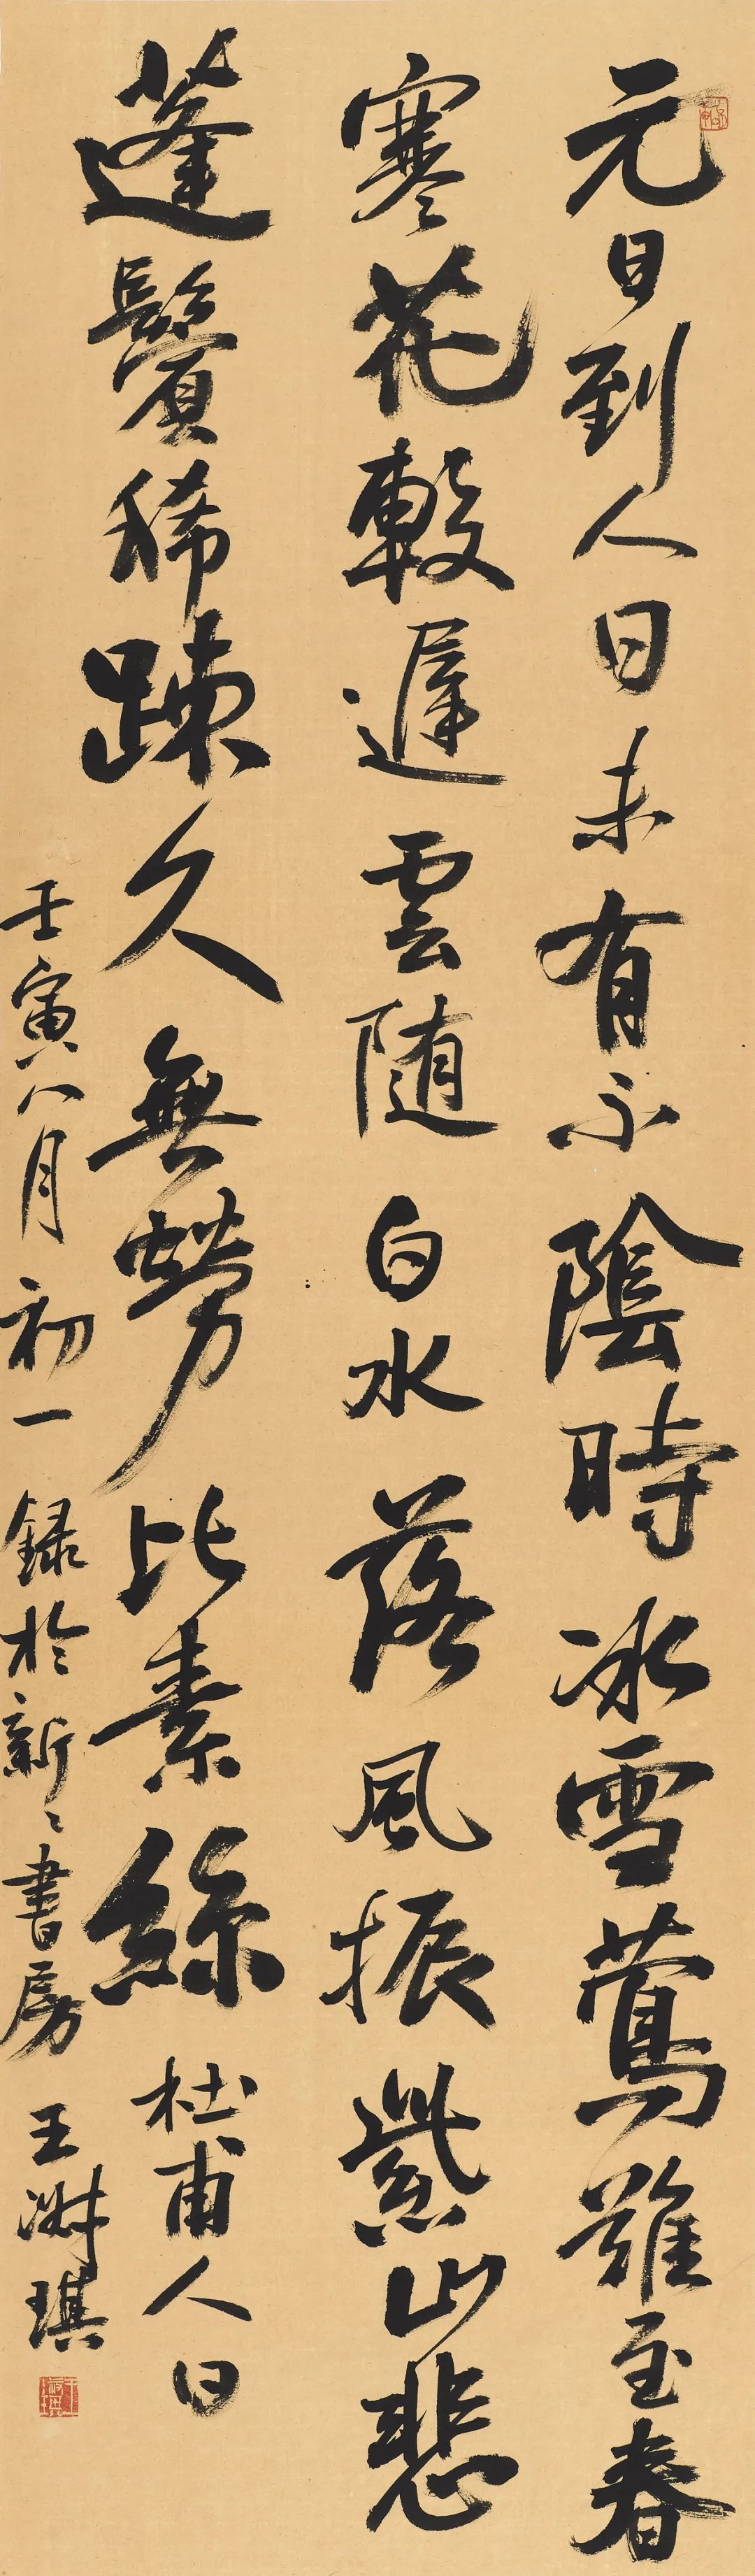 元日到人日未有不陰時冰雪鶯難至春
寒花較遲雲随白水落風振紫山悲
蓬鬢稀踈久無勞比素絲杜甫人日
壬寅八月初一録於新〻書房王淋琪